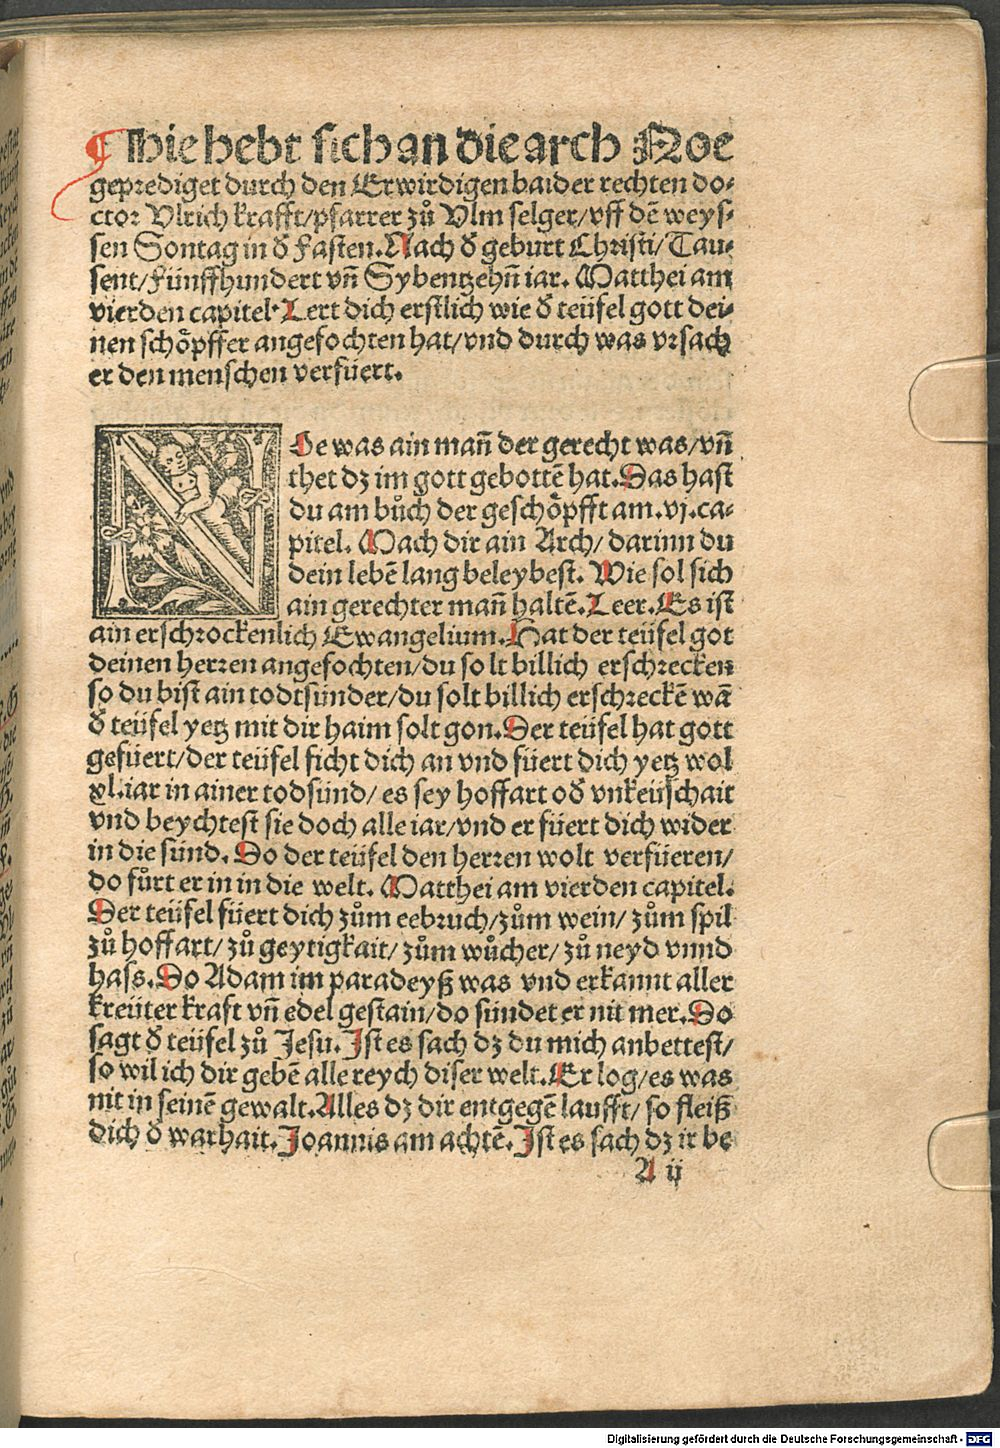 ¶ Hie hebt sich an die arch Noe
geprediget durch den Erwirdigen baider rechten do⸗
ctor Vlrich krafft/pfarrer zů Vlm selger/vff dē weys⸗
sen Sontag in đ Fasten. Nach đ geburt Christi/Tau⸗
sent/Fünffhundert vñ Sybentzehñ iar. Matthei am
vierden capitel. Lert dich erstlich wie đ teüfel gott dei⸗
nen schöpffer angefochten hat/vnd durch was vrsach
er den menschen verfüert.
NOe was ain mañ der gerecht was/vñ
thet dz im gott gebottē hat. Das hast
du am bůch der geschöpfft am .vj. ca⸗
pitel. Mach dir ain Arch/ darinn du
dein lebē lang beleybest. Wie sol sich
ain gerechter mañ haltē. Leer. Es ist
ain erschrockenlich Ewangelium. Hat der teüfel got
deinen herren angefochten/du solt billich erschrecken
so du bist ain todtsünder/du solt billich erschreckē wā
đ teüfel yetz mit dir haim solt gon. Der teüfel hat gott
gefüert/der teüfel ficht dich an vnd füert dich yetz wol
xl. iar in ainer todsünd/ es sey hoffart ođ vnkeüschait
vnd beychtest sie doch alle iar/vnd er füert dich wider
in die sünd. Do der teüfel den herren wolt verfüeren/
do fůrt er in in die welt. Matthei am vierden capitel.
Der teüfel füert dich zům eebruch/zům wein/ zům spil
zů hoffart/ zů geytigkait/ zům wůcher/ zů neyd vnnd
hass. Do Adam im paradeyß was vnd erkannt aller
kreüter kraft vñ edel gestain/do sündet er nit mer. Do
sagt đ teüfel zů Jesu. Ist es sach dz du mich anbettest/
so wil ich dir gebē alle reych diser welt. Er log/es was
nit in seinē gewalt. Alles dz dir entgegē laufft/ so fleiß
dich đ warhait. Joannis am achtē. Ist es sach dz ir be
A ij
Digitalisierung gefördert durch die Deutsche Forschungsgemeinschaft - DFG